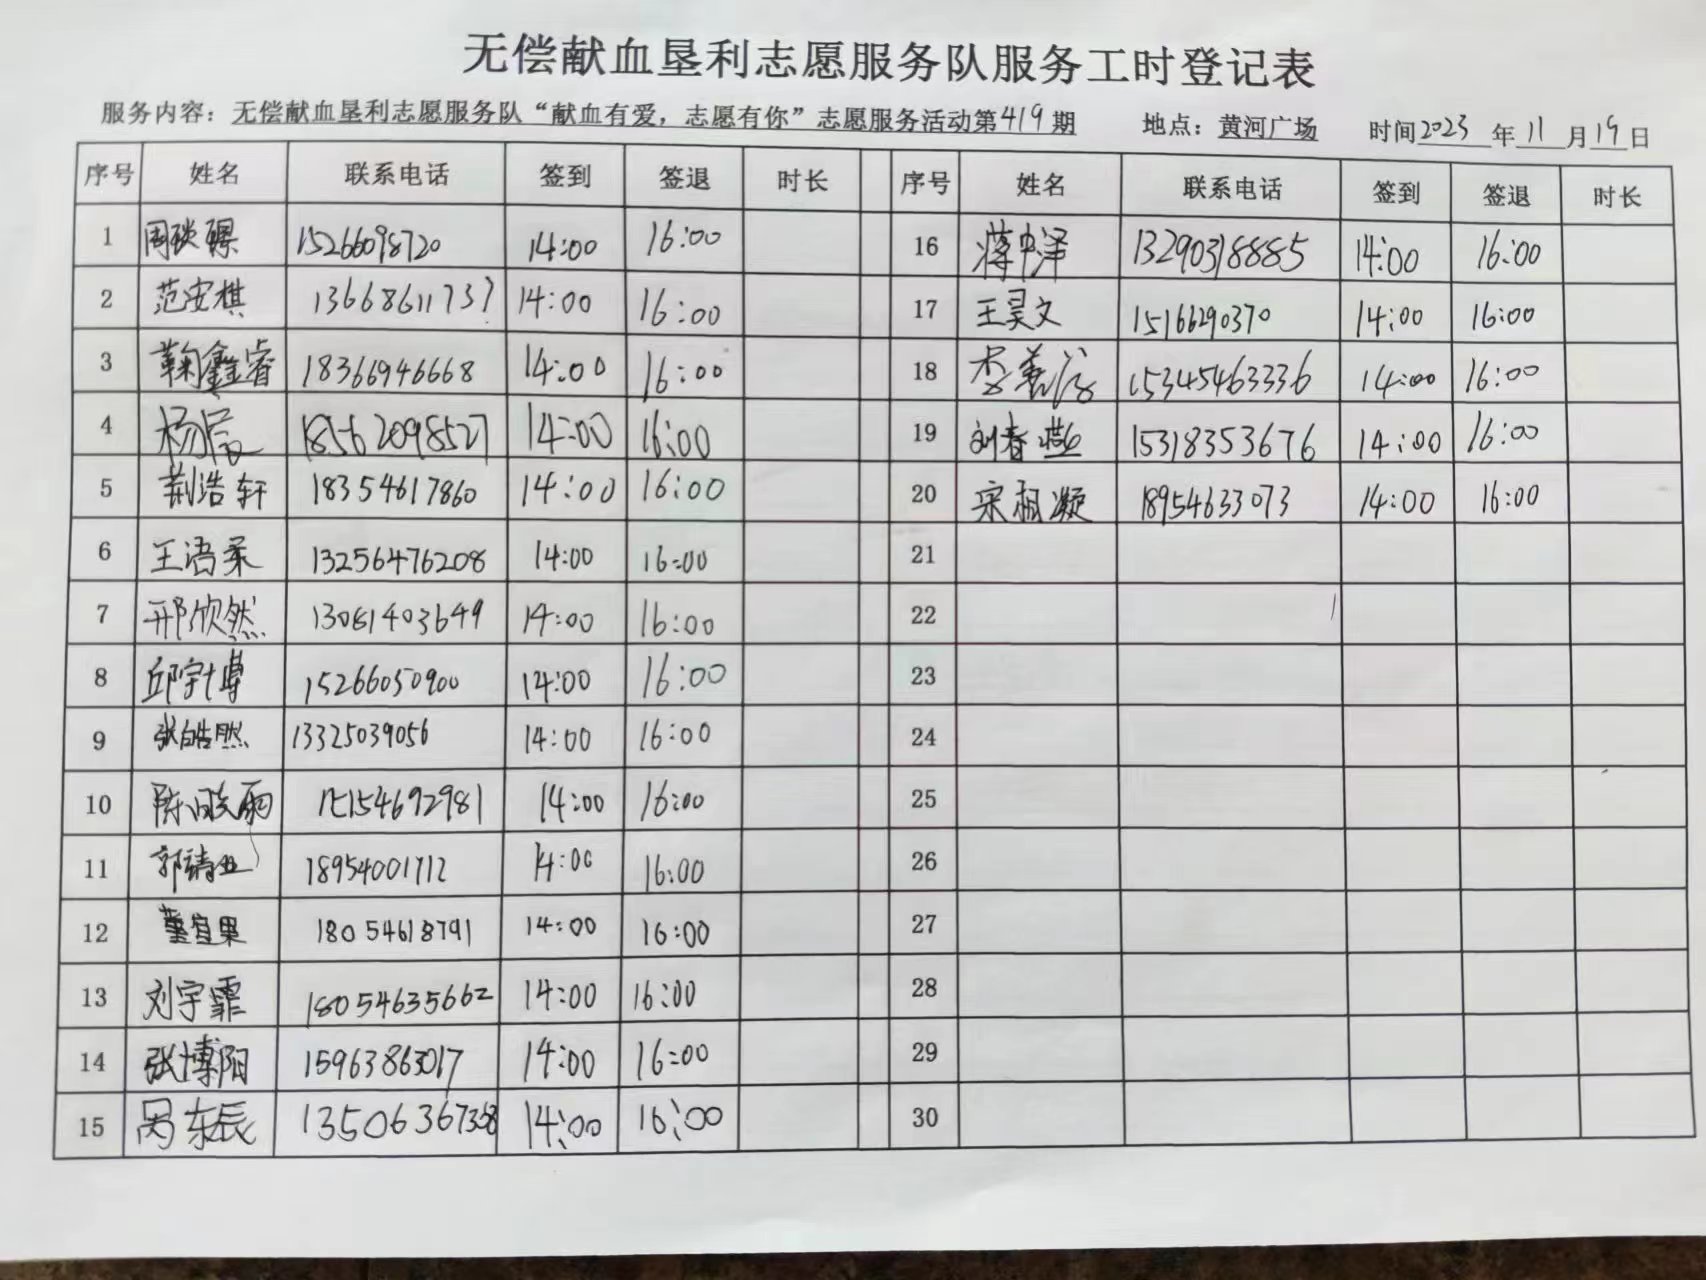 无偿献血垦利志愿服务队服务工时登记表
服务内容：无偿献血垦利志愿服务队“献血有爱，志愿有你”志愿服务活动第419期 地点：黄河广场 时间2023年11月19日
序号 姓名 联系电话 签到 签退 时长 序号 姓名 联系电话 签到 签退 时长
1 周琰 15266098720 14:00 16:00 16 蒋中泽 13290318885 14:00 16:00
2 范安棋 13668611737 14:00 16:00 17 王昊文 15166290370 14:00 16:00
3 鞠鑫睿 18366946668 14:00 16:00 18 李 15345463336 14:00 16:00
4 杨 18562098527 14:00 16:00 19 刘春燕 15318353676 14:00 16:00
5 荆浩轩 18354617860 14:00 16:00 20 宋相凝 18954633073 14:00 16:00
6 王语柔 13256476208 14:00 16:00 21
7 邢欣然 13061403649 14:00 16:00 22
8 邱宇博 15266050900 14:00 16:00 23
9 张皓然 13325039056 14:00 16:00 24
10 陈 雨 15154692981 14:00 16:00 25
11 郭靖业 18954001712 14:00 16:00 26
12 董宜果 18054618791 14:00 16:00 27
13 刘宇霏 18054635662 14:00 16:00 28
14 张博阳 15963863017 14:00 16:00 29
15 东辰 13506367368 14:00 16:00 30